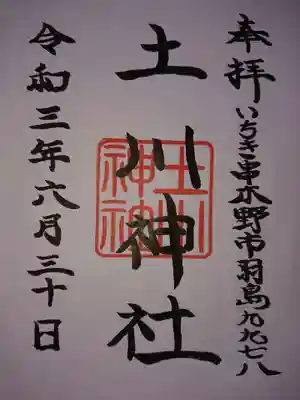 奉拝
いちき串木野市羽島九九七八
土川神社
土川
神社
令和三年六月三十日